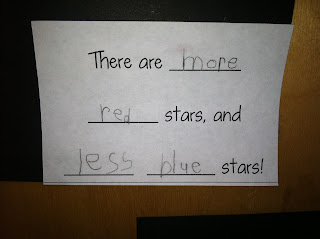 There are more
red stars, and
less blue stars!